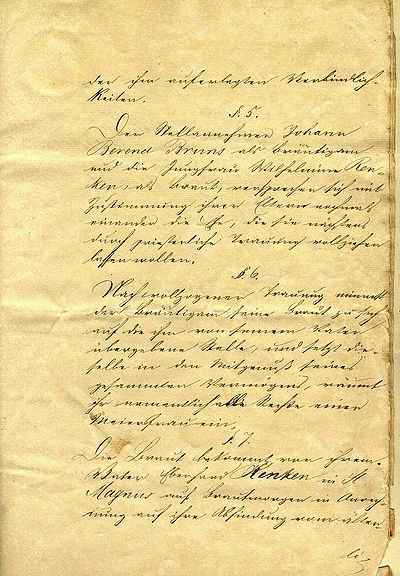 der ihm auferlegten Verbindlich-
keiten.
§. 5.
Der Stellannehmer Johann
Berend Bruns als Bräutigam
und die Jungfrau Wilhelmine Ren-
ken, als Braut, versprechen sich mit
Zustimmung ihrer Eltern nochmals
einander die Ehe, die sie nächstens
durch priesterliche Trauung vollziehen
lassen wollen.
§. 6.
Nach vollzogener Trauung nimmt
der Bräutigam seine Braut zu sich
auf die ihm von seinem Vater
übergebene Stelle, und setzt die-
selbe in den Mitgenuß seines
gesammten Vermögens, räumt
ihr namentlich alle Rechte einer
Meierfrau ein.
§. 7.
Die Braut bekommt von ihrem
Vater Eberhard Renken in St.
Magnus auf Brautmorgen in Anrech-
nung auf ihre Abfindung vom älter-
li-